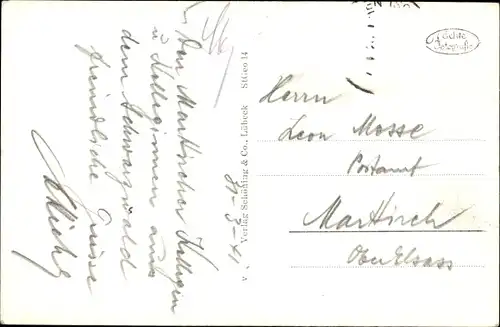 Den Markircher Kollegen
u Kolleginnen aus
dem Schwarzwald
freundliche Grüsse
31-3-41
Verlag Schöning & Co., Lübeck StGeo 14
Echte
Fotografie
Herrn
Leon Mosse
Postamt
Markirch
Ober Elsass